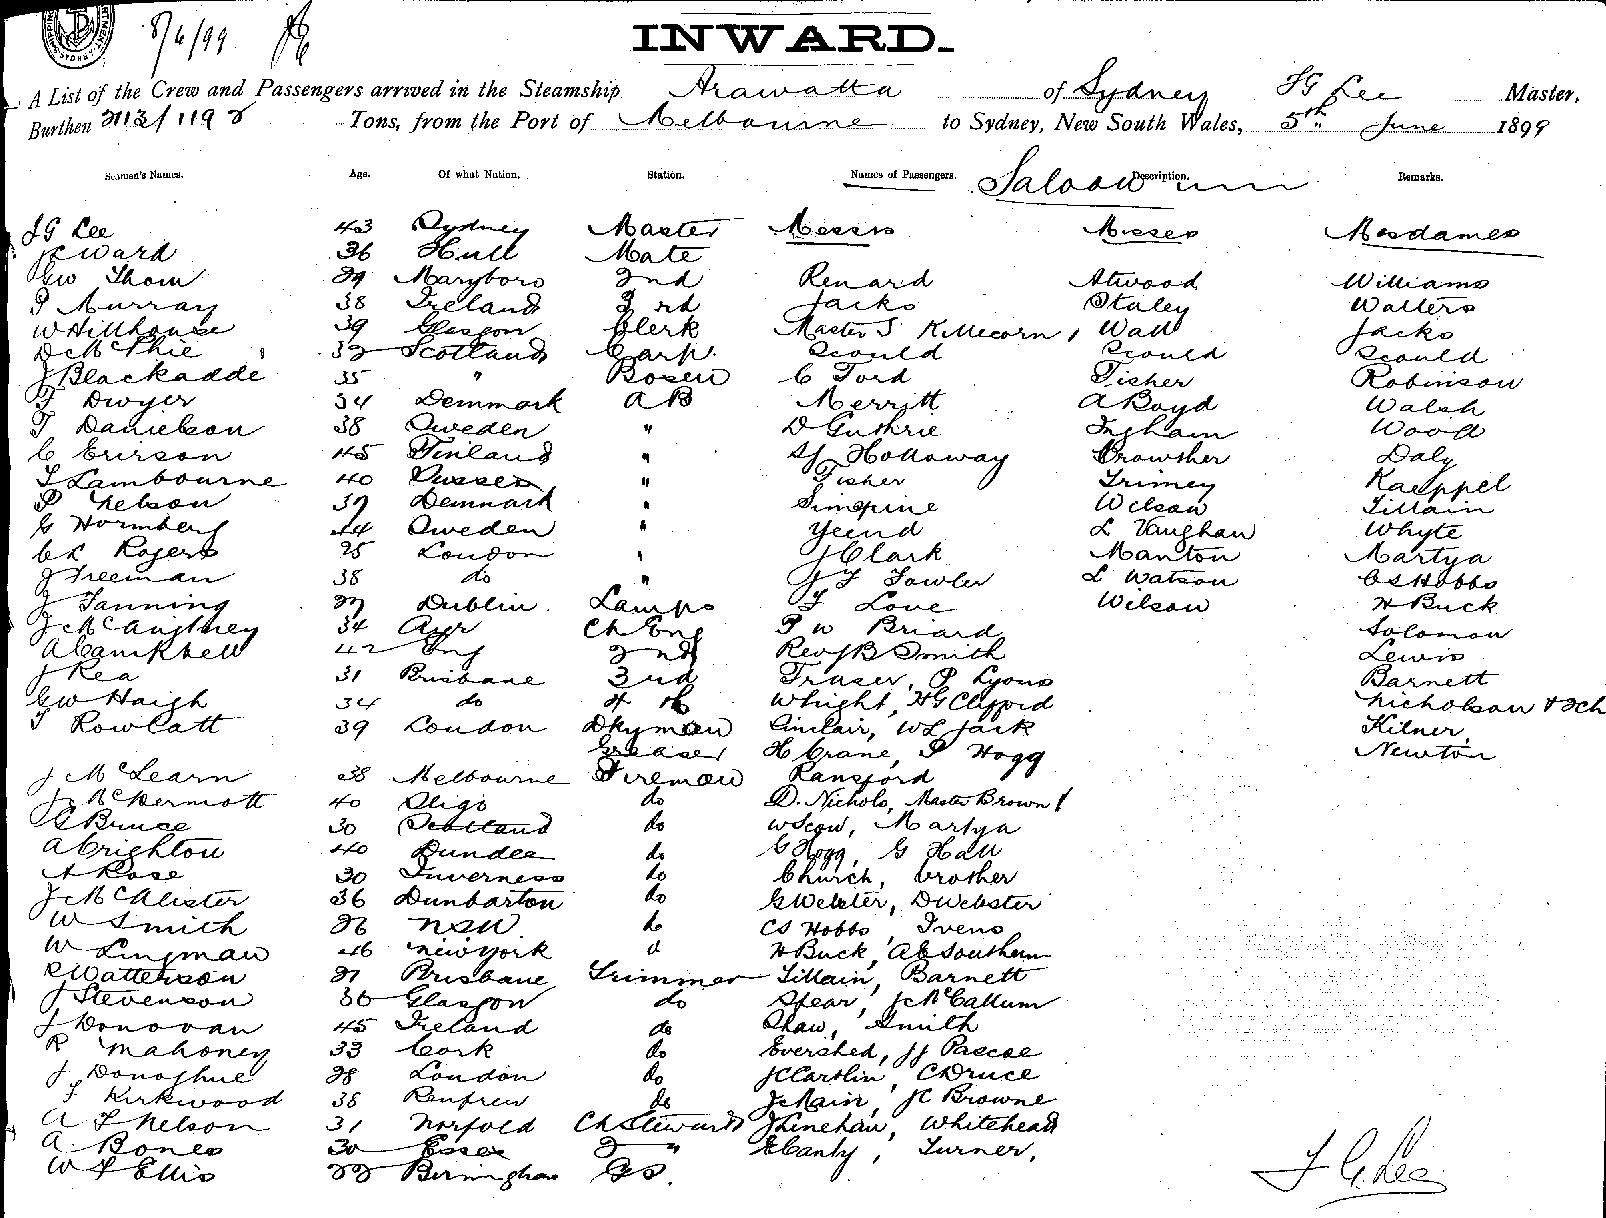 8/6/99
INWARD.
A List of the Crew and Passengers arrived in the Steamship Arawatta of Sydney J G Lee Master,
Burthen 2113/1192 Tons, from the Port of Melbourne to Sydney, New South Wales, 5th June 1899
Seamen's Names. Age. Of what Nation. Station. Names of Passengers. Saloon Description. Remarks.
J G Lee 43 Sydney Master Messrs Misses Mesdames
Ward 36 Hull Mate
GW Thom 29 Maryboro 2nd Renard Atwood Williams
P Murray 38 Ireland 3rd Jacks Staley Walters
W Hillhouse 39 Glasgow Clerk Master S Killecorn 1 Wall Jacks
D McPhie 32 Scotland Carp. Scould Scould Scould
J Blackadde 35 " Bosen C Ford Fisher Robinson
T Dwyer 34 Denmark AB Merritt A Boyd Walsh
T Danielson 38 Sweden " D Guthrie Ingham Wood
C Erirson 45 Finland " Holloway Crowther Daly
T Lambourne 40 Sussex " Fisher Trimey Kaeppel
P Nelson 37 Denmark " Simspine Wilson Tillain
G Hormberg 44 Sweden " Yeend L Vaughan Whyte
CL Rogers 25 London " J Clark Manton Martya
J Freeman 38 do " J F Fowler L Watson CS Hobbs
J Fanning 27 Dublin. Lamps F Love Wilson H Buck
J McAughney 34 Ayr Ch Eng P W Briard Solomon
A Campbell 42 Ing 2nd Rev JB Smith Lewis
J Rea 31 Brisbane 3rd Fraser, P Lyons Barnett
GW Haigh 34 do 4th Whright, HG Clifford Nicholson + 2ch
T Rowlatt 39 London Dkyman Sinclair, WL Jack Kilner,
Greaser H Crane, P Hogg Newton
J McLearn 38 Melbourne Fireman Ransford
J McDermott 40 Sligo do D. Nichols, Master Brown 1
G Bruce 30 Scotland do W Scow, Martya
A Crighton 40 Dundee do G Hogg, G Hall
A Rose 30 Inverness do Church, Crother
J McAlister 36 Dunbarton do G Webster, D Webster
W Smith 26 NSW. do CS Hobbs, Ivens
W Lingman 46 New York d H Buck, AE Southern
R Watterson 27 Brisbane Trimmer Tillain, Barnett
J Stevenson 36 Glasgow do Spear, J McCallum
J Donovan 45 Ireland do Shaw, Smith
R Mahoney 33 Cork do Evershed, JJ Pascoe
J Donoghue 28 London do JC Carslin, C Druce
J Kirkwood 38 Renfrew do J McNair, JC Browne
A F Nelson 31 Norfold Ch Steward J Linehan, Whitehead
A. Bones 30 Essex 2 " E Canty, Turner,
W F Ellis 22 Birmingham GS.
J G Lee